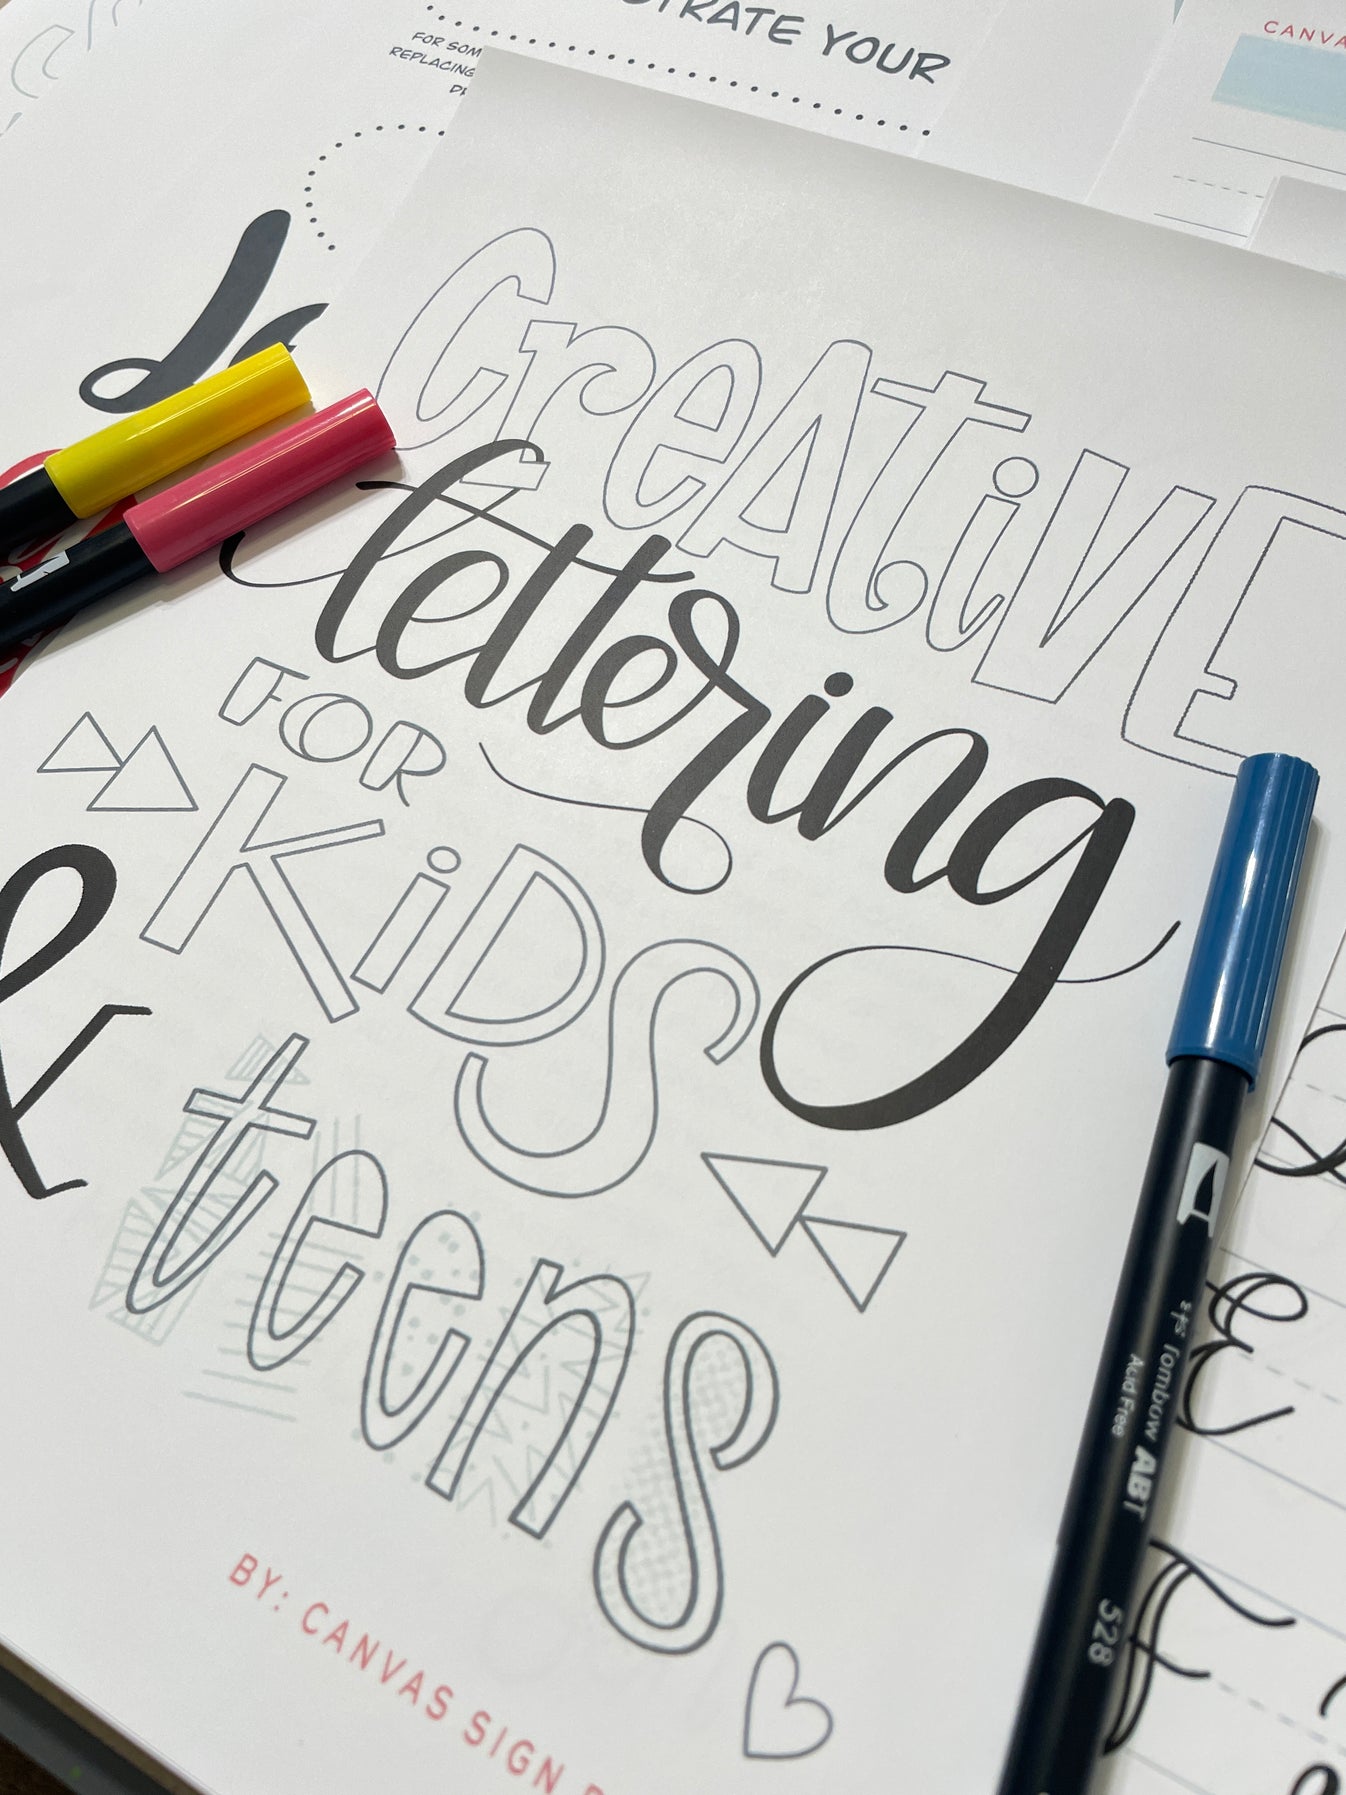 STRATE YOUR
FOR SOM
REPLACING
CANVA
CreAtiVE
lettering
FOR
KiDS
&
teens
BY: CANVAS SIGN
Tombow ABT
Acid Free
528